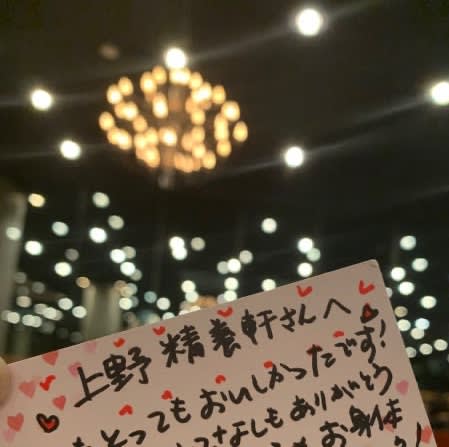 上野 精養軒さんへ
とってもおいしかったです!
てなしもありがとう
お身体は